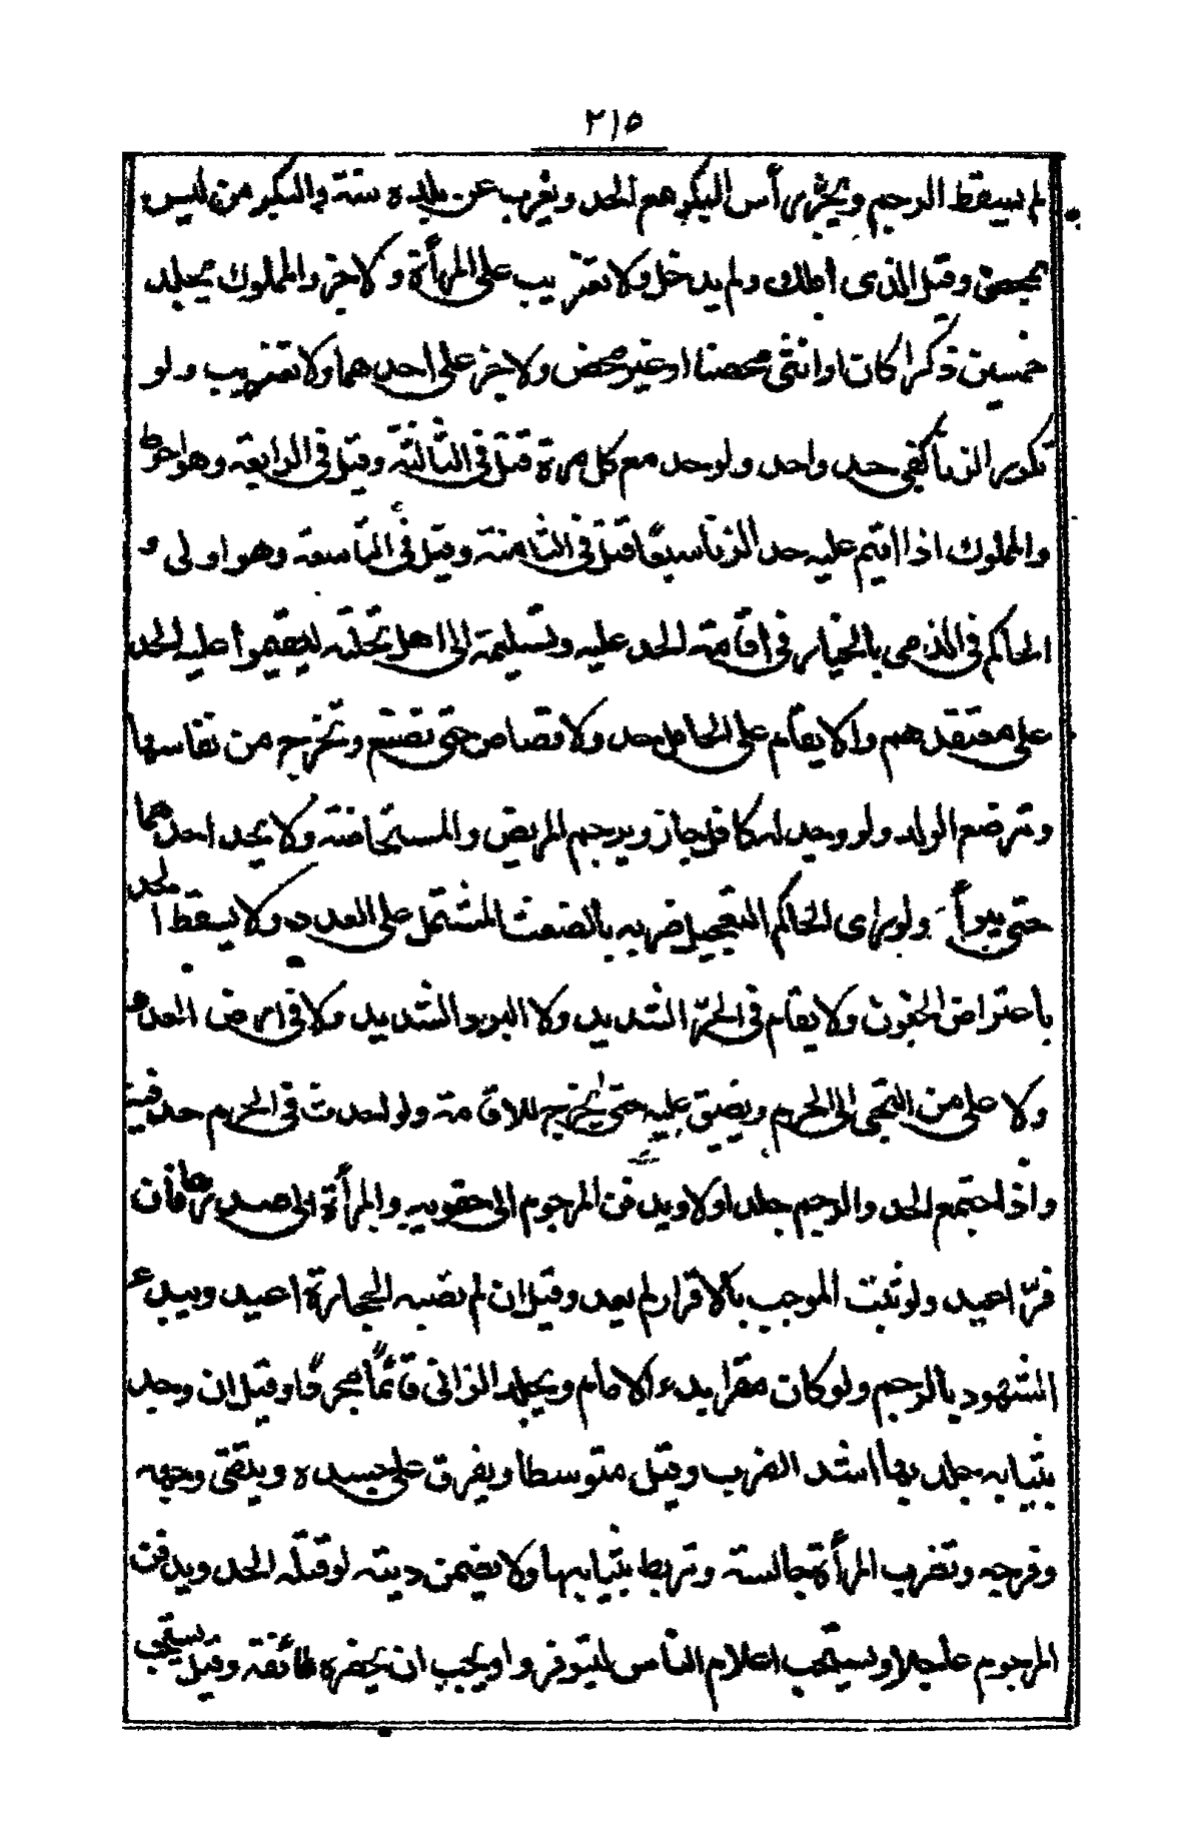 ٢١٥
لم يسقط الرجم ويجز رأس البكر مع الحد ويغرب عن بلده سنة والبكر من ليس
بمحصن وقيل الذى أملك ولم يدخل ولا تغريب على المرأة ولا جز والمملوك يجلد
خمسين ذكرا كان او انثى محصنا او غير محصن ولا جز على احدهما ولا تغريب ولو
تكرر الزنا كفى حد واحد ولو حد مع كل مرة قتل فى الثالثة وقيل فى الرابعة وهو احوط
والمملوك اذا اقيم عليه حد الزنا سبعًا قتل فى الثامنة وقيل فى التاسعة وهو اولى و
الحاكم فى الذمى بالخيار فى أقامة الحد عليه وتسليمه الى اهل نحلته ليقيموا عليه الحد
على معتقدهم والا يقام على الحامل حد ولا قصاص حتى تضع وتخرج من نفاسها
وترضع الولد ولو وجد له كافل جاز ويرجم المريض والمستحاضة ولا يحد احدهما
حتى يبرأ ولو رأى الحاكم التعجيل ضربه بالضغث المشتمل على العدد ولا يسقط الحد
بأعتراض الجنون ولا يقام فى الحرّ الشديد ولا البرد الشديد ولا فى ارض العدو
ولا على من التجى الى الحرم ويضيق عليه حتى يخرج للاقامة ولو احدث فى الحرم حد فيه
واذا اجتمع الحد والرجم جلد اولا ويدفن المرجوم الى حقويه والمرأة الى صدرها فأن
فرّ اعيد ولو ثبت الموجب بالاقرار لم يعد وقيل ان لم تصبه الحجارة اعيد ويبدء
الشهود بالرجم ولو كان مقرا بدء الامام ويجلد الزانى قائمًا مجردًا وقيل ان وجد
بثيابه جلد بها اشد الضرب وقيل متوسطا ويفرق على جسده ويتقى وجهه
وفرجه وتضرب المرأة جالسة وتربط بثيابها ولا يضمن ديته لو قتله الحد ويدفن
المرجوم عاجلا ويستحب اعلام الناس ليتوفروا ويجب ان يحضره طائفة وقيل يستحب